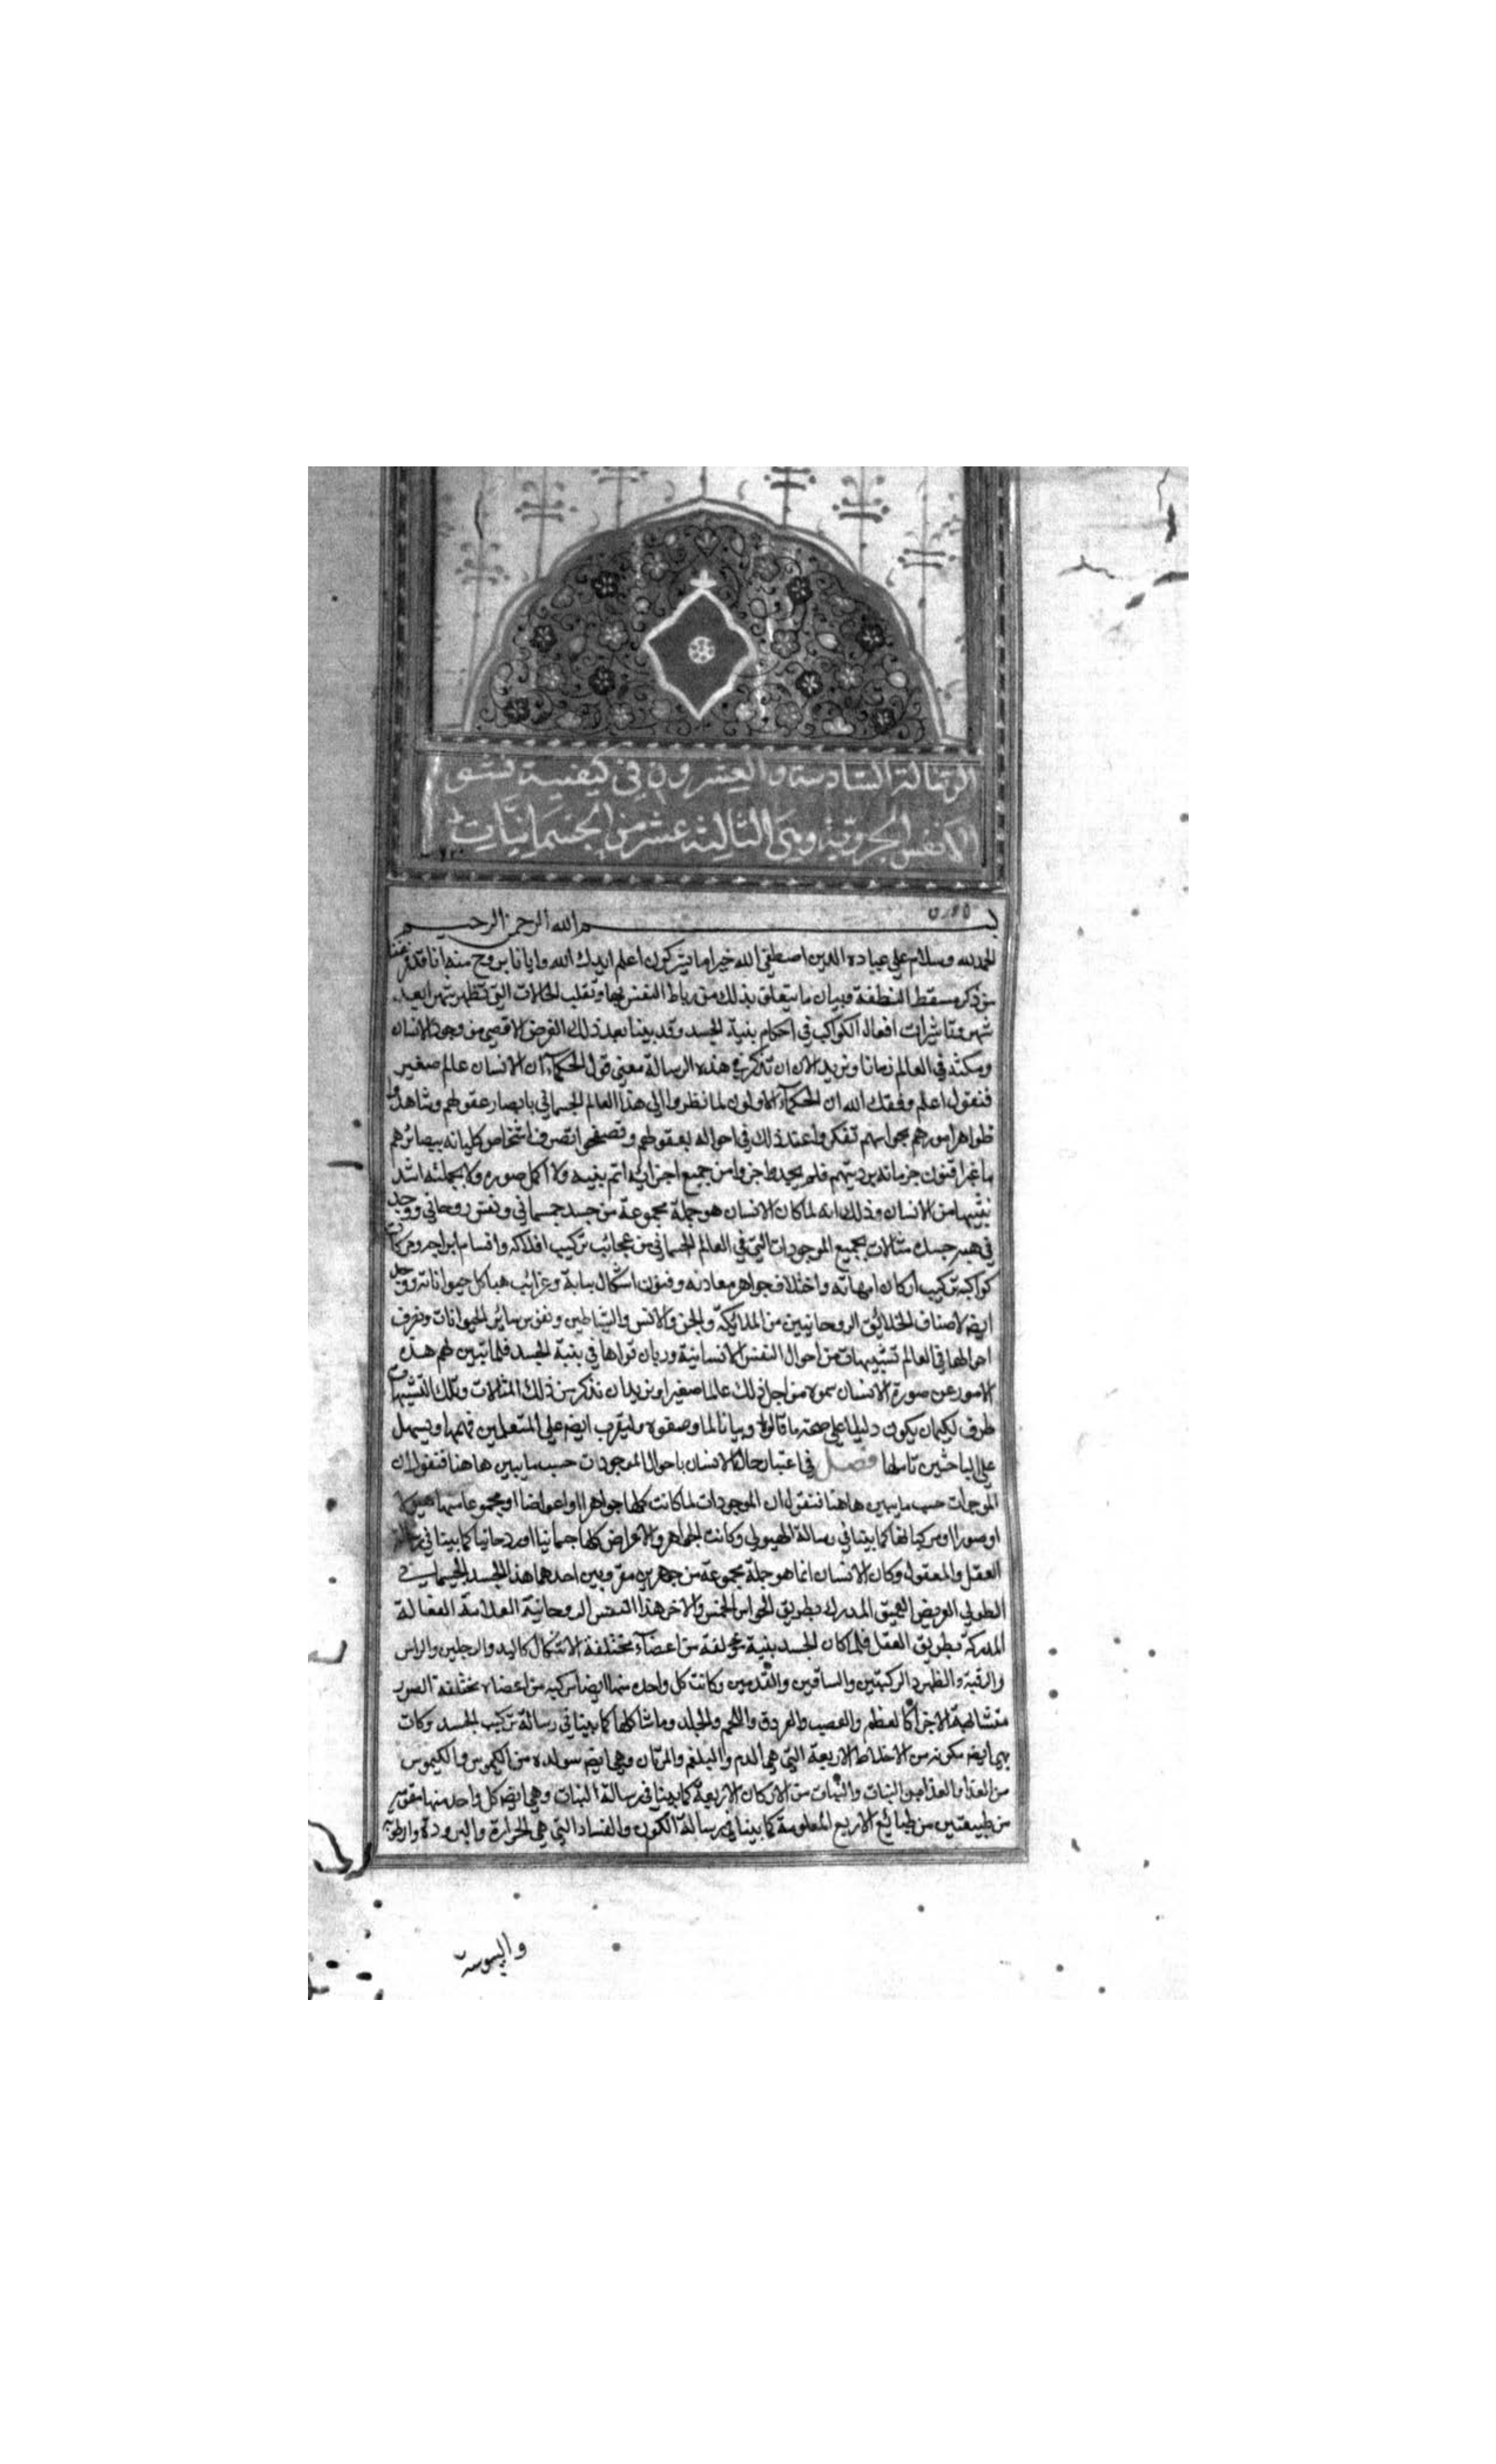 الرسالة السادسة والعشرون في كيفية نشو
الانفس الجزوية وهي الثالثة عشر من الجسمانيات
بسم الله الرحمن الرحيم
الحمد لله وسلام علي عباده الذين اصطفي الله خير اما يشركون اعلم ايدك الله وايانا بروح منه انا قد فرغنا
من ذكر مسقط النطفة وبيان ما يتعلق بذلك من رباط النفس بها وتقلب الحالات التي تظهر شهرا بعد
شهر وتاثيرات افعال الكواكب في احكام بنية الجسد وقد بينا بعد ذلك الغرض الاقصي من وجود الانسان
ومكثه في العالم زمانا ونريد الان ان تذكر في هذه الرسالة معني قول الحكماء ان الانسان عالم صغير
فنقول اعلم وفقك الله ان الحكماء الاولون لما نظروا الي هذا العالم الجسماني بابصار عقولهم وشاهدوا
ظواهر امورهم بحواسهم تفكروا عند ذلك في احواله بعقولهم وتصفحوا تصرف اشخاص كلياته ببصائرهم
فنون جزياته برديتهم فلم يجدوا جزوا من جميع اجزائه اتم بنيه ولا اكمل صوره ولا بجملته اشد
تشبيها من الانسان وذلك انه لما كان الانسان هو جملة مجموعة من جسد جسماني ونفس روحاني ووجد
في جسده مثالات لجميع الموجودات التي في العالم الجسماني من عجائب تركيب افلاكه واقسام ابراجه وحركات
كواكبه تركيب اركان امهاته واختلاف جواهر معادنه وفنون اشكال نباته وغرائب هياكل حيواناته ووجد
ايضا لاصناف الخلائق الروحانيين من الملائكة والجن والانس والشياطين ونفوس سائر الحيوانات وتصرف
احوالها في العالم تشبيهات من احوال النفس الانسانية وسريان قواها في بنية الجسد فلما تبين لهم هذه
الامور عن صورة الانسان سموه من اجل ذلك عالما صغيرا ونريد ان نذكر من ذلك المثالات وتلك التشبيهات
طرف ليكون دليلا علي صحة ما قالوا وبيانا لما وصفوه وليقرب ايضا علي المتعلمين فهمها ويسهل
علي الباحثين تاملها فصل في اعتبار حال الانسان باحوال الموجودات حسب ما يبين هاهنا فنقول ان
الموجودات حسب ما يبين هاهنا فنقول ان الموجودات لما كانت كلها جواهرا او اعراضا او مجموعا منهما هيولا
او صورا او مركبا منها كما بينا في رسالة الهيولي وكانت الجواهر والاعراض كلها جسمانيا او روحانيا كما بينا في رسالة
العقل والمعقول وكان الانسان انما هو جملة مجموعة من جوهرين مقرونين احدهما هذا الجسد الجسماني
الطويل العريض العميق المدرك بطريق الحواس الخمس والاخر هذا النفس الروحانية العلامة الفعالة
المدركة بطريق العقل فلما كان الجسد بنية مؤلفة من اعضاء مختلفة الاشكال كاليد والرجلين والراس
والرقبة والظهر والركبتين والساقين والقدمين وكانت كل واحد منها ايضا مركبه من اعضاء مختلفة الصور
متشابهة الاجزا كالعظم والعصب والعروق واللحم والجلد وما شاكلها كما بينا في رسالة تركيب الجسد وكانت
ايضا مكونه من الاخلاط الاربعة التي هي الدم والبلغم والمرتان وهي ايضا متولده من الكيموس والكيموس
من الغذا والغذا من النبات والنبات من الاركان الاربعة كما بينا في رسالة النبات وهي ايضا كل واحد منها مقوم
من طبيعتين من طبائع الاربع المعلومة كما بينا في رسالة الكون والفساد التي هي الحرارة والبرودة والرطوبة
واليبوسة